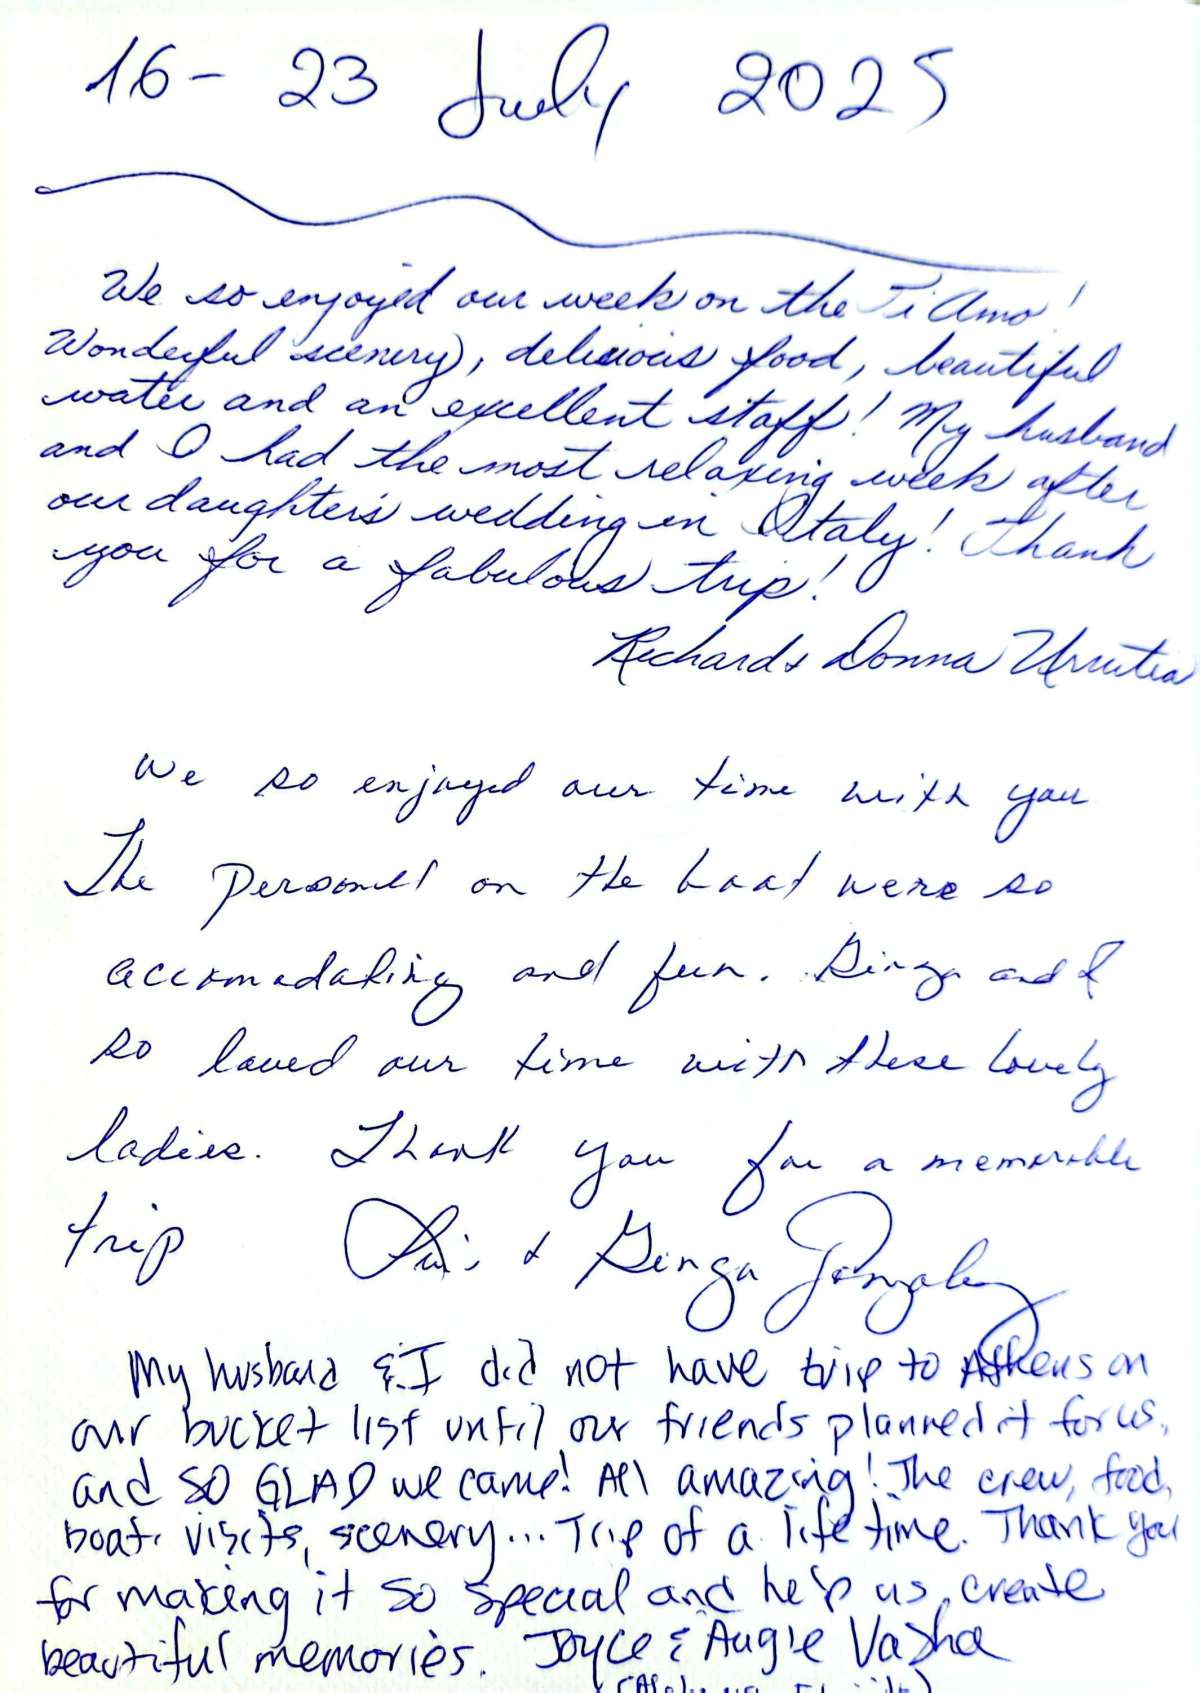 16 - 23 July 2025
We so enjoyed our week on the Ti Amo!
Wonderful scenery, delicious food, beautiful
water and an excellent staff! My husband
and I had the most relaxing week after
our daughter's wedding in Italy! Thank
you for a fabulous trip!
Richard & Donna Urrutia
We so enjoyed our time with you
The personel on the boat were so
accomadating and fun. Ginga and I
so loved our time with these lovely
ladies. Thank you for a memorable
trip Luis & Ginga Gonzalez
My husband & I did not have trip to Athens on
our bucket list until our friends planned it for us,
and SO GLAD we came! All amazing! The crew, food,
boat, visits, scenery... Trip of a life time. Thank you
for making it so special and help us create
beautiful memories. Joyce & Augie Vasha